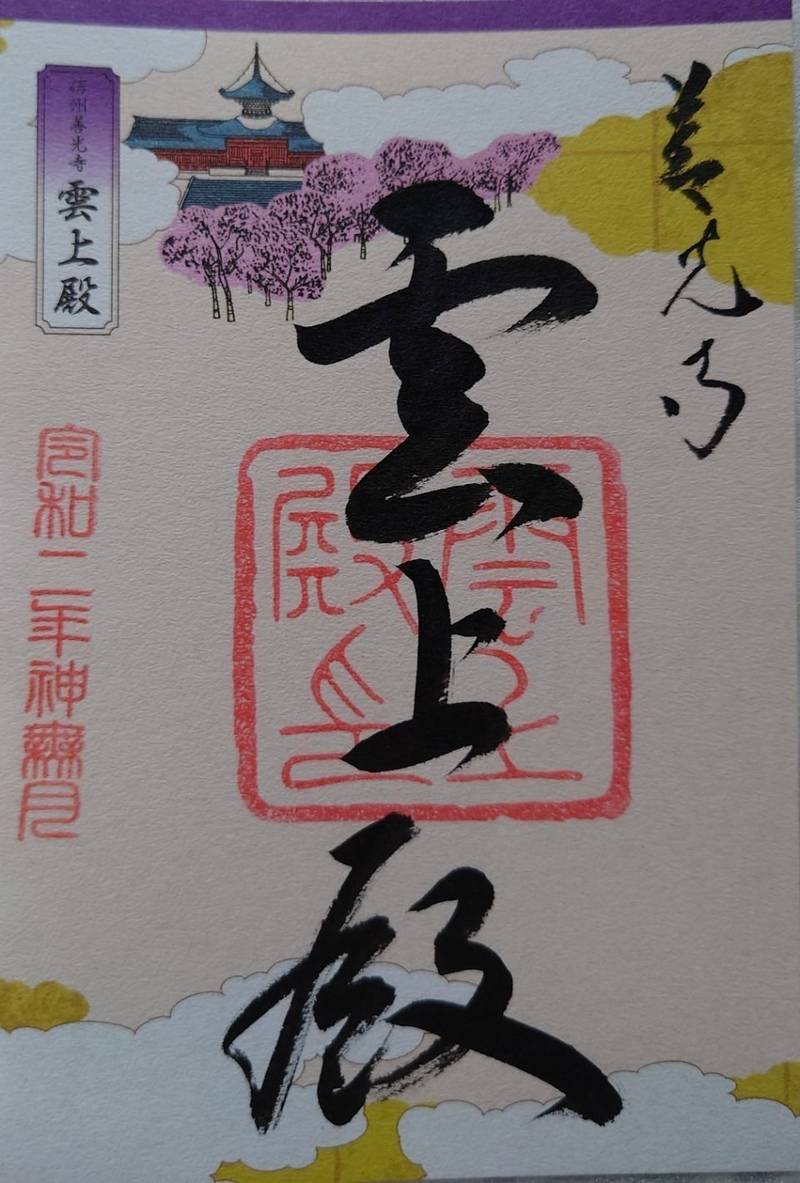 善光寺
雲上殿
雲上殿印
信州善光寺
雲上殿
令和二年神無月